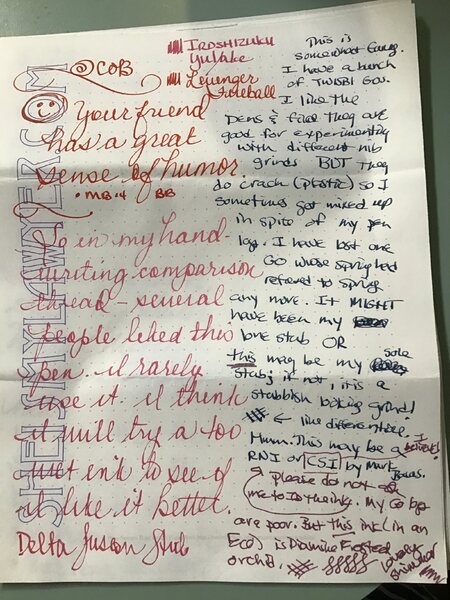 Iroshizuku
Yu Yake
@COB
Levenger
Fireball
Your friend
has a great
sense of humor.
• MB • 4 BB
So in my hand-
writing comparison
thread - several
people liked this
pen. I rarely
use it. I think
I will try a too
wet ink to see if
I like it better.
Delta Fusion Stub
SHELSMYLAWYER.COM
This is
somewhat funny.
I have a bunch
of TWSBI Gos.
I like the
pens & find they are
good for experimenting
with different nib
grinds BUT they
do crack (plastic) so I
sometimes get mixed up
in spite of my pen
log. I have lost one
GO whose spring had
refused to spring
any more. It MIGHT
have been my
lone stub OR
this may be my sole
stub; if not, it is a
stubbish baking grind!
← like differentiree.
Hmm. This may be a
RNI or CSI by Mark I believe!
Bacas.
I please do not ask
me to ID the inks. My Go log
are poor. But this ink (in an
Eco) is Diamine Frosted
orchid. lovely
shimmer